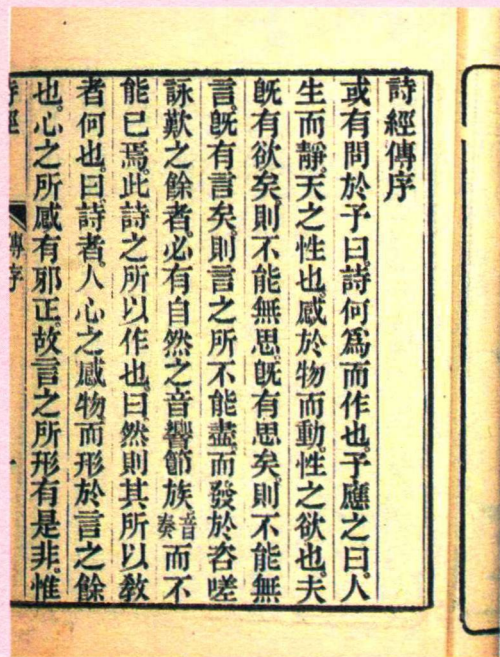 詩經傳序
或有問於予曰。詩何爲而作也。予應之曰。人
生而靜。天之性也。感於物而動。性之欲也。夫
旣有欲矣。則不能無思。旣有思矣。則不能無
言。旣有言矣。則言之所不能盡。而發於咨嗟
詠歎之餘者。必有自然之音響節族音奏而不
能已焉。此詩之所以作也。曰然則其所以敎
者何也。曰。詩者。人心之感物。而形於言之餘
也。心之所感有邪正。故言之所形有是非。惟
詩經 傳序 一